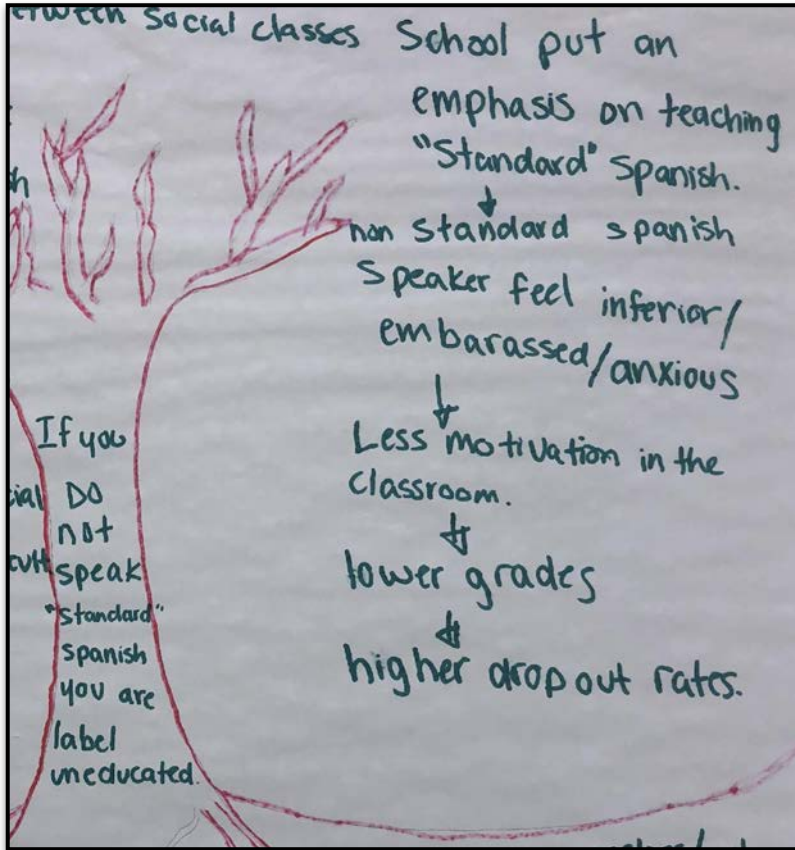 between social classes
School put an
emphasis on teaching
"Standard" Spanish.
non standard spanish
Speaker feel inferior/
embarassed/anxious
Less motivation in the
classroom.
lower grades
higher dropout rates.
If you
DO
not
speak
"standard"
spanish
you are
label
uneducated.